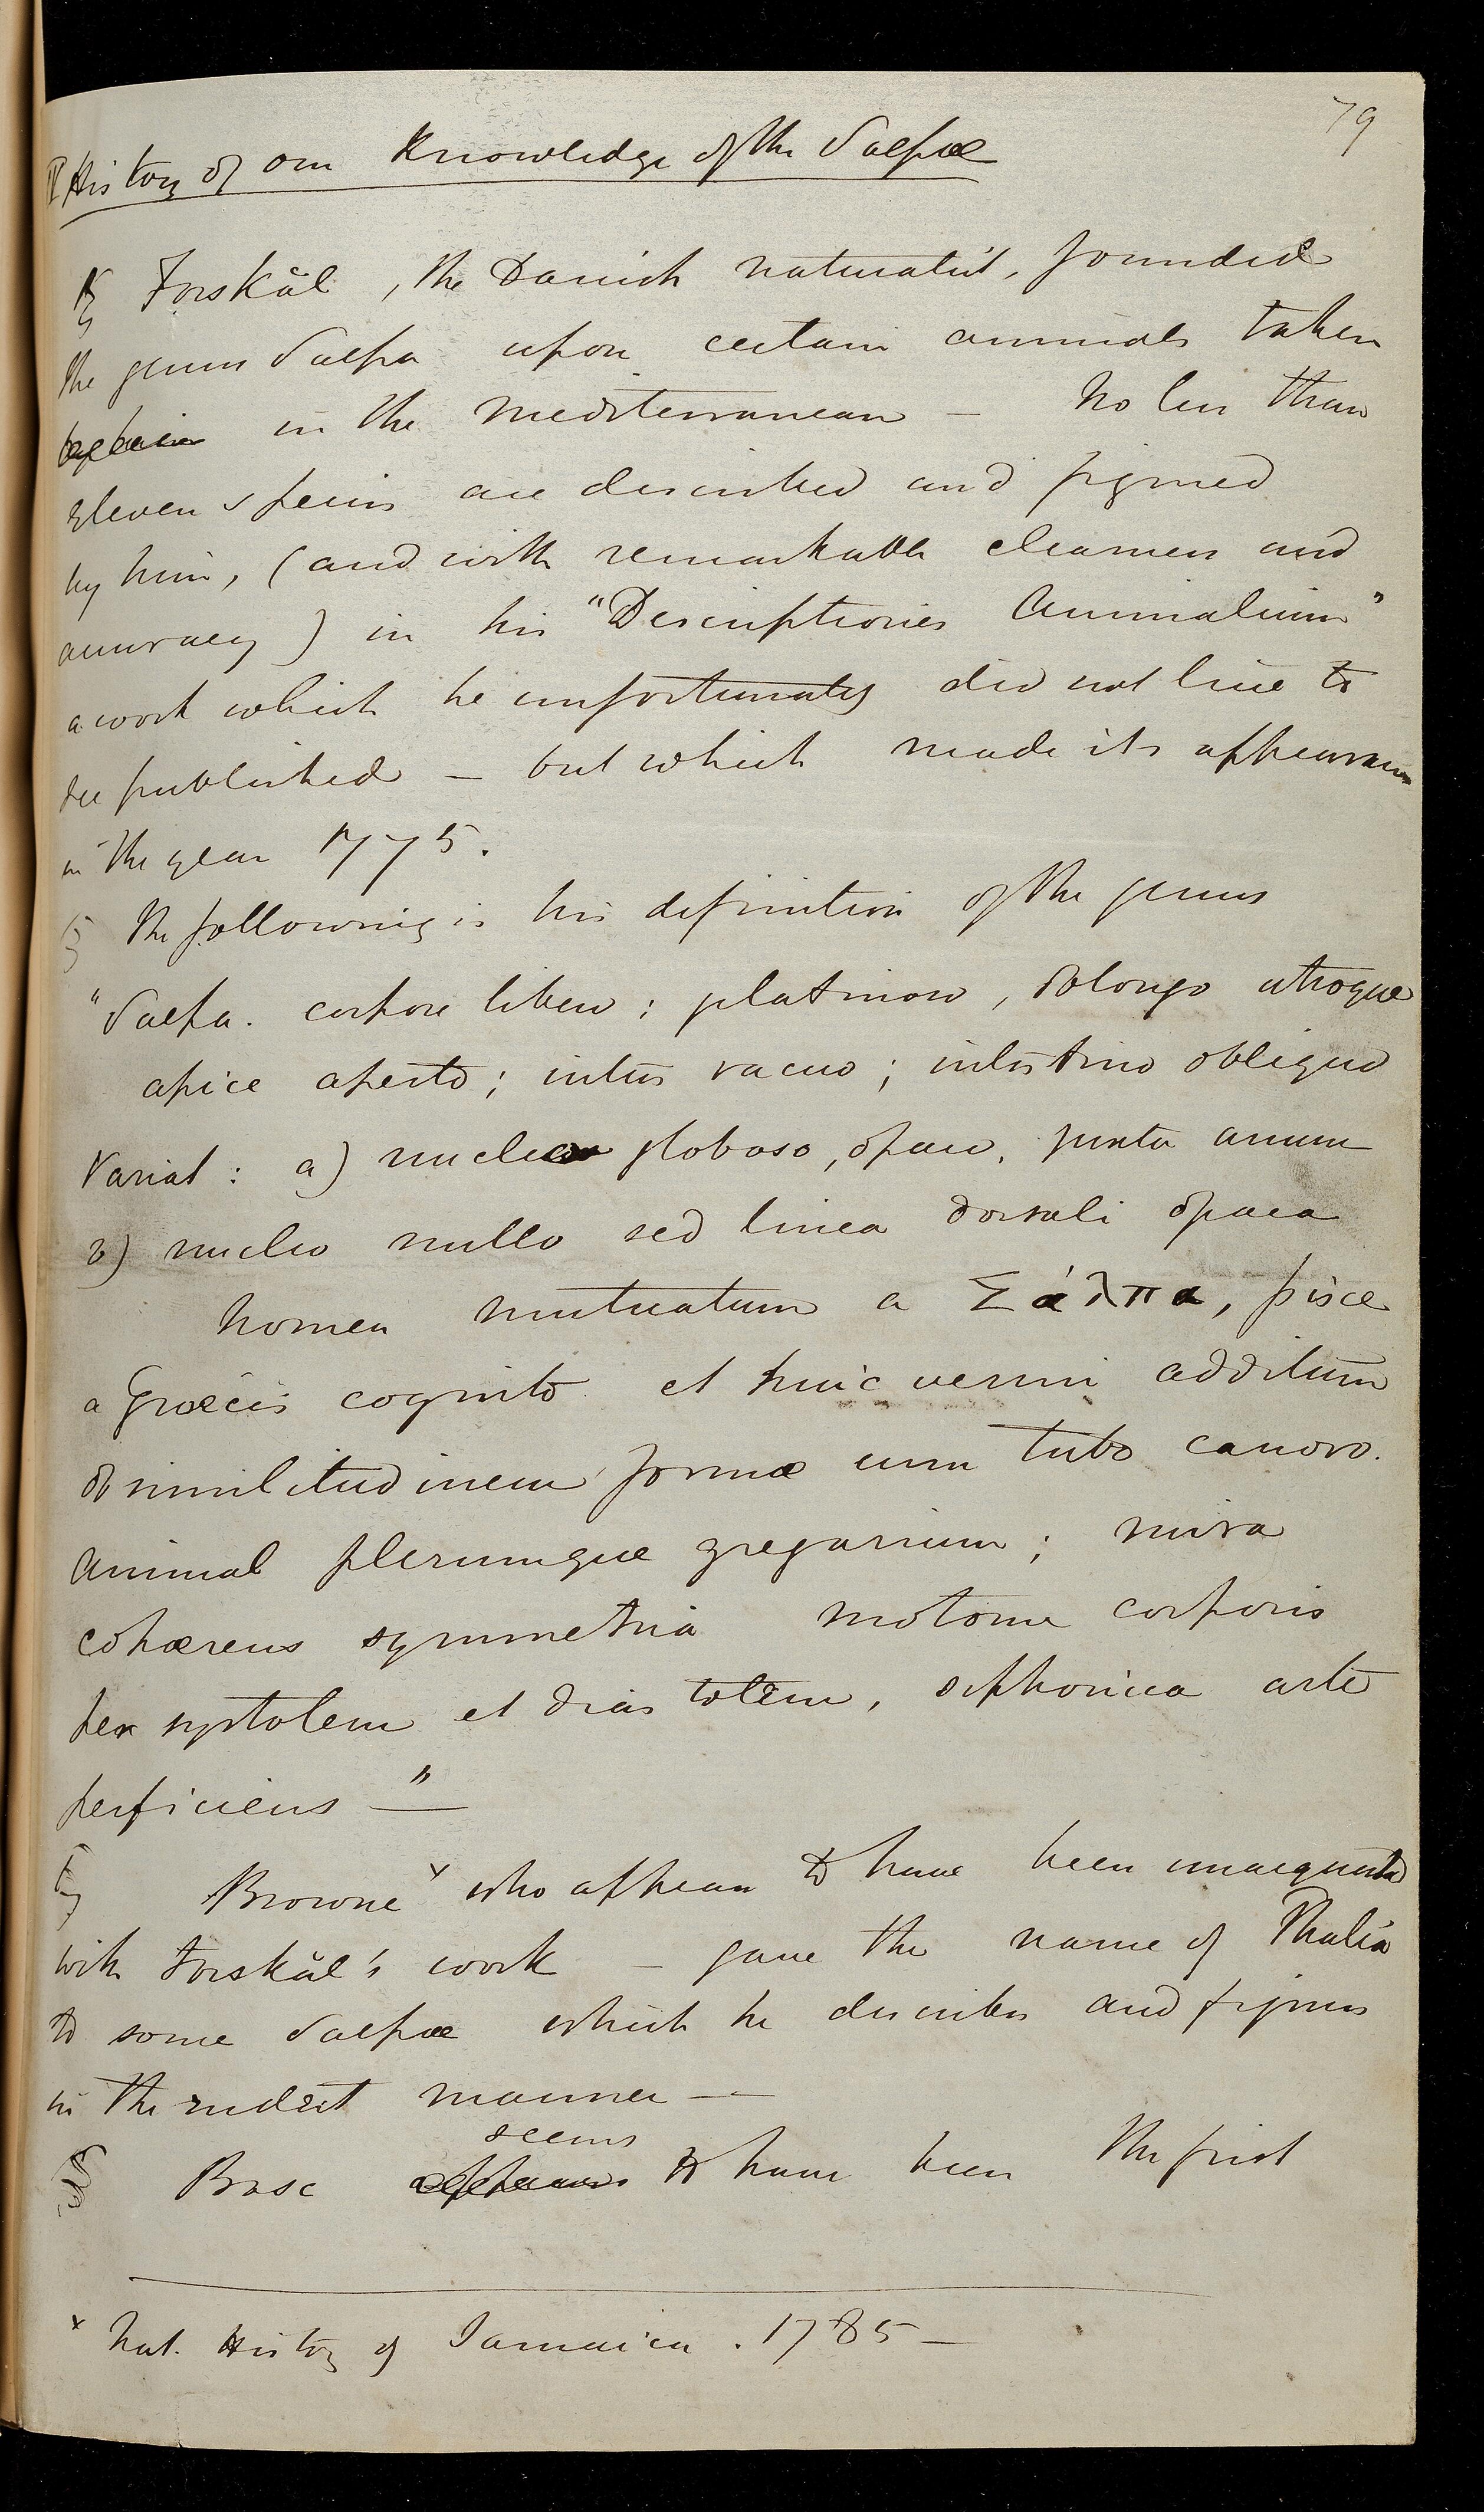 79
II History of our Knowledge of the Salpæ
§ Forskål, the Danish naturalist, founded
the genus Salpa upon certain animals taken
in the Mediterranean – no less than
eleven species are described and figured
by him, (and with remarkable clearness and
accuracy) in his "Descriptiones Animalium"
a work which he unfortunately did not live to
see published – but which made its appearance
in the year 1775.
§ The following is his definition of the genus
"Salpa. corpore libero; gelatinoso, oblongo utroque
apice aperto; intus vacuo; intestino obliquo
Variat: a) nucleo globoso, opaco, juxta anum
b) nucleo nullo sed linea dorsali opaca
nomen mutuatum a Σάλπα, pisce
a Græcis cognito et huic vermi additum
ob similitudinem formæ cum tubo canoro.
Animal plerumque gregarium; mira
cohærens symmetria motum corporis
per systolem et diastolem, siphonica arte
perficiens" —
§ Browne x who appears to have been unacquainted
with Forskål's work – gave the name of Thalia
to some Salpæ which he describes and figures
in the rudest manner —
seems
§ Bosc appears to have been the first
x Nat. History of Jamaica. 1785 –